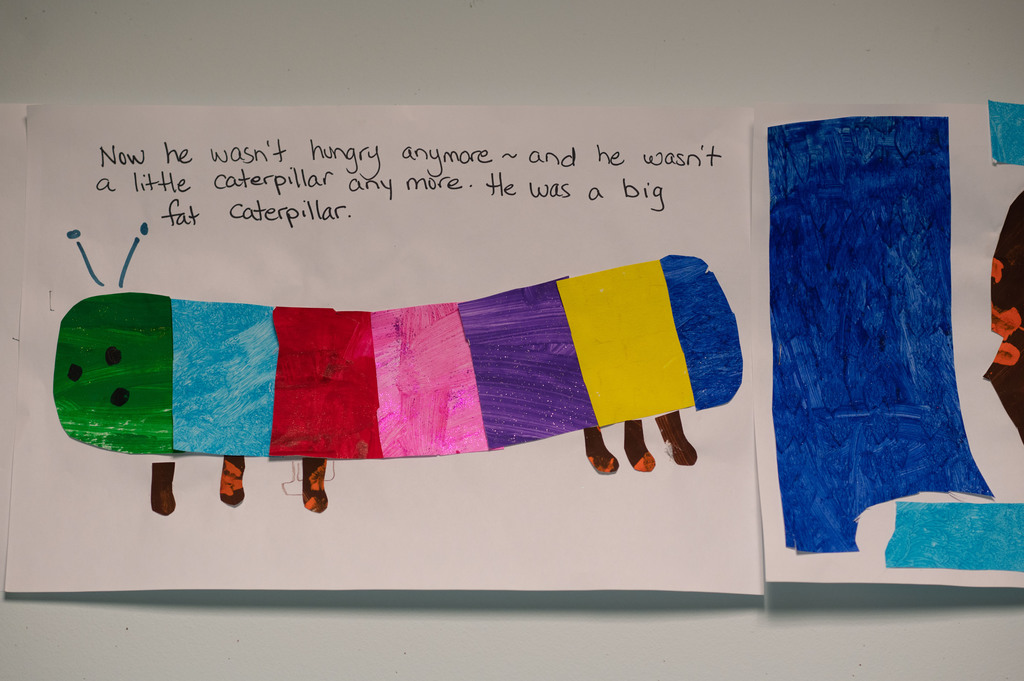 Now he wasn't hungry anymore ~ and he wasn't
a little caterpillar any more. He was a big
fat caterpillar.